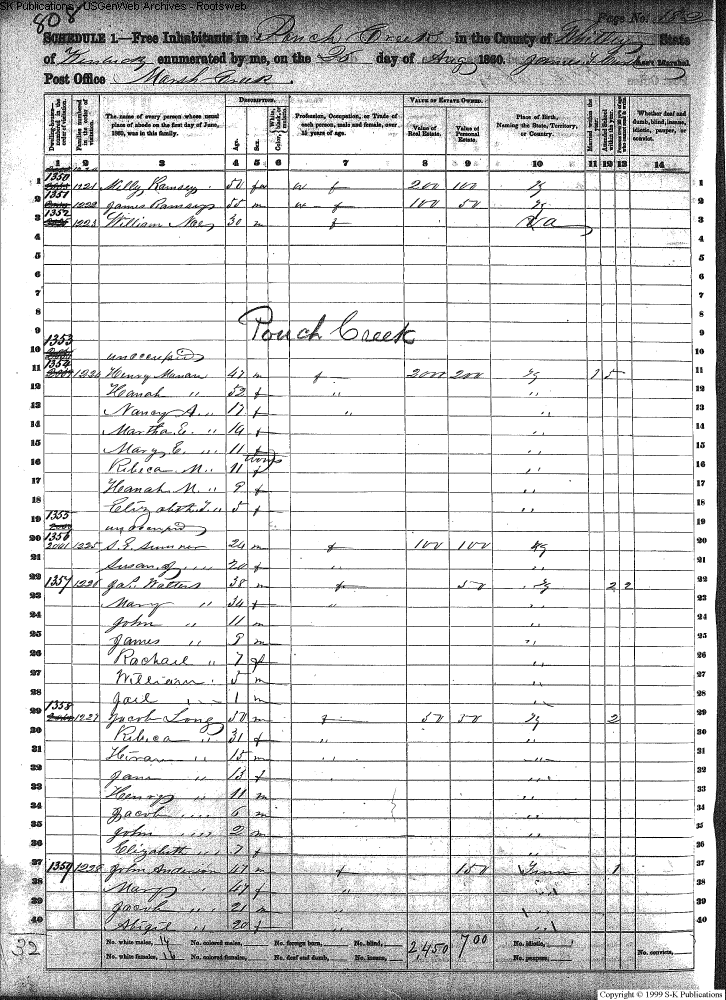 SK Publications / USGenWeb Archives - Rootsweb
808
Page No. 182
SCHEDULE 1.—Free Inhabitants in Pouch Creek in the County of Whitley State
of Kentucky enumerated by me, on the 25 day of Aug 1860. James Ass't Marshal
Post Office Marsh Creek.
Dwelling-houses— numbered in the order of visitation.
Families numbered in the order of visitation.
The name of every person whose usual place of abode on the first day of June, 1860, was in this family.
DESCRIPTION.
Age.
Sex.
Color, White, black, or mulatto.
Profession, Occupation, or Trade of each person, male and female, over 15 years of age.
VALUE OF ESTATE OWNED.
Value of Real Estate.
Value of Personal Estate.
Place of Birth, Naming the State, Territory, or Country.
Married within the year.
Attended School within the year.
Whether deaf and dumb, blind, insane, idiotic, pauper, or convict.
1 2 3 4 5 6 7 8 9 10 11 12 13 14
1 1350 1221 Milly Ramsey 50 f 200 100 Ky 1
2 1351 1222 James Ramsey 55 m f 100 50 Ky 2
3 1352 1223 William 30 m f 3
4 4
5 5
6 6
7 7
8 8
Pouch Creek
9 9
10 1353 unoccupied 10
11 1354 1224 Henry 47 m f 2000 200 Ky 1 5 11
12 Heanah " 52 f " " 12
13 Nancy A. " 17 f " " 13
14 Martha E. " 14 f " 14
15 Mary E. " 11 f " 15
16 Rebeca M. " 11 f twins " 16
17 Heanah M. " 9 f " 17
18 Elizabeth T. " 5 f " 18
19 1355 unoccupied 19
20 1356 2001 1225 S. E. Sumner 24 m f 100 100 Ky 20
21 Susan " 20 f " " 21
22 1357 1226 Jas. Watters 38 m f 50 Ky 2 2 22
23 Mary " 34 f " " 23
24 John " 11 m " 24
25 James " 9 m " 25
26 Rachael " 7 f " 26
27 William " 5 m " 27
28 Jail " 1 m " 28
29 1358 1227 Jacob Long 50 m f 50 50 Ky 2 29
30 Rebeca " 31 f " " 30
31 Hiram " 15 m " 31
32 Jane " 13 f " 32
33 Henry " 11 m " 33
34 Jacob " 6 m " 34
35 John " 2 m " 35
36 Elizabeth " 7 f " 36
37 1359 1228 John Anderson 47 m f 150 Tenn 1 37
38 Mary " 47 f " " 38
39 Jacob " 21 m " " 39
40 Abigil " 20 f " 40
32
No. white males, 14 No. colored males, No. foreign born, No. blind, 2,450 700 No. idiotic,
No. white females, 16 No. colored females, No. deaf and dumb, No. insane, No. paupers, No. convicts,
Copyright © 1999 S-K Publications